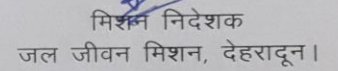 मिशन निदेशक
जल जीवन मिशन, देहरादून।